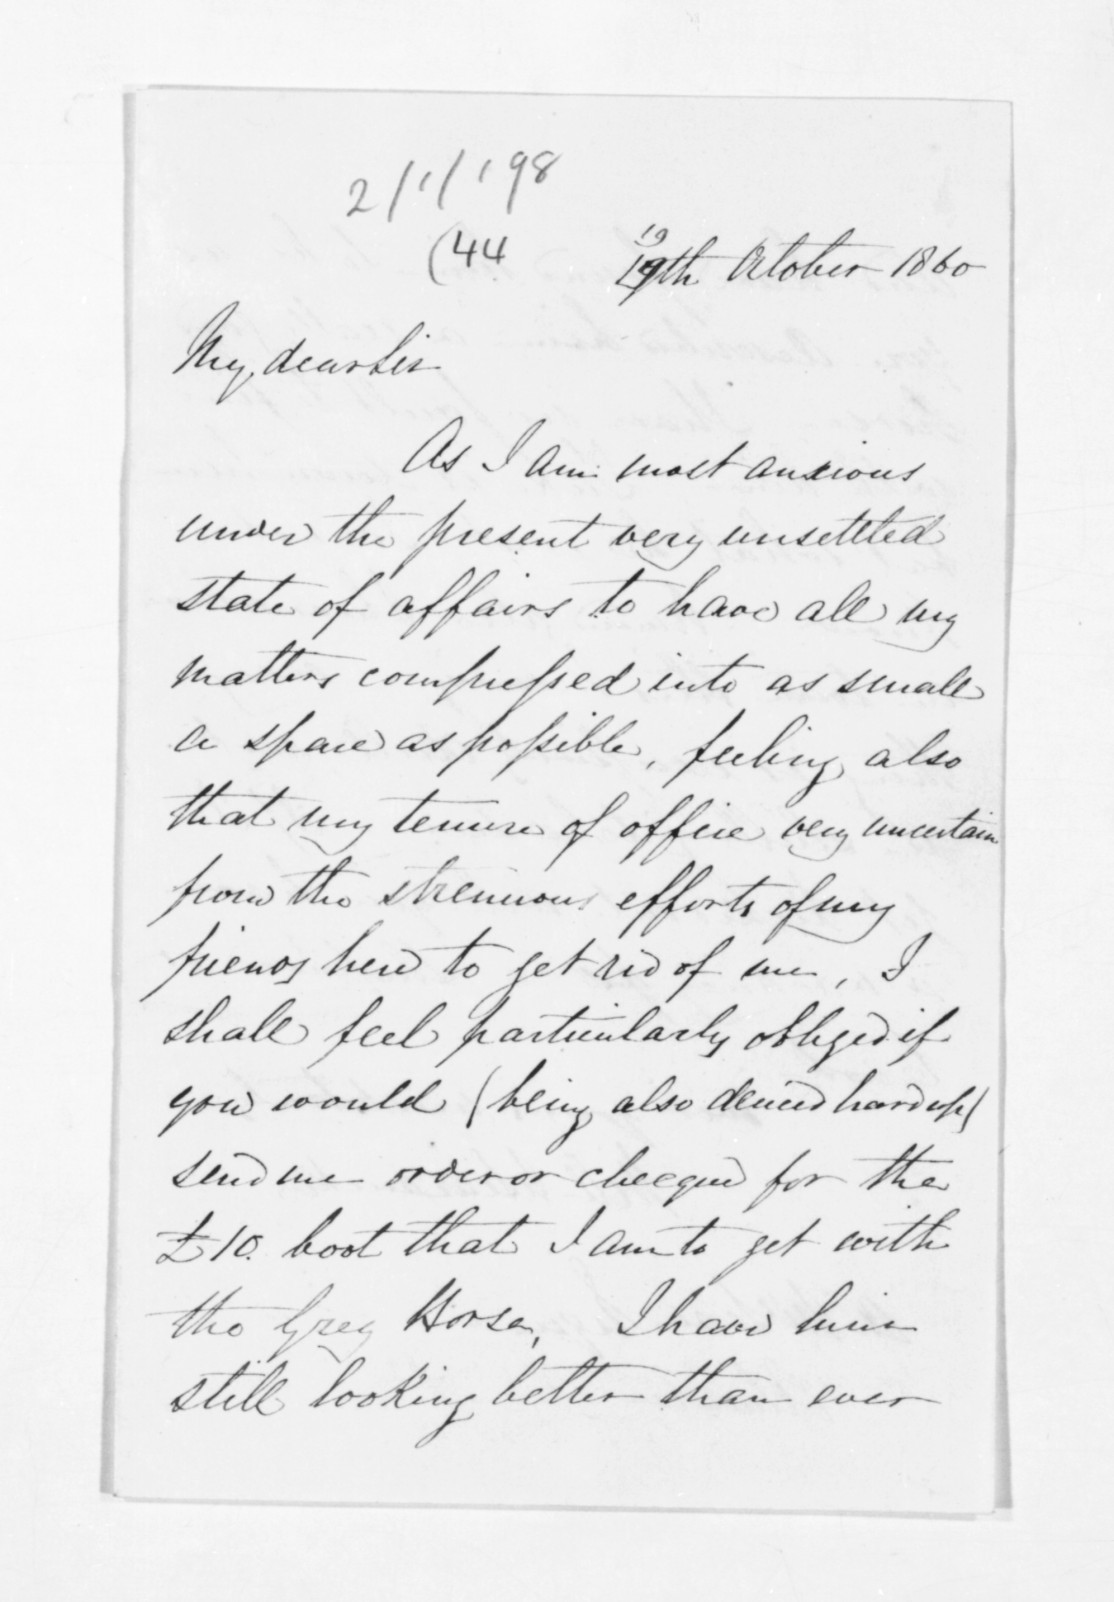 2/1/198
(44
19
19th October 1860
My dear Sir
As I am most anxious
under the present very unsettled
state of affairs to have all my
matters compressed into as small
a space as possible, feeling also
that my tenure of office very uncertain
from the strenuous efforts of my
friends here to get rid of me, I
shall feel particularly obliged if
you would (being also hard up)
send me order or cheque for the
£10. boot that I am to get with
the Grey Horse, I have him
still looking better than ever